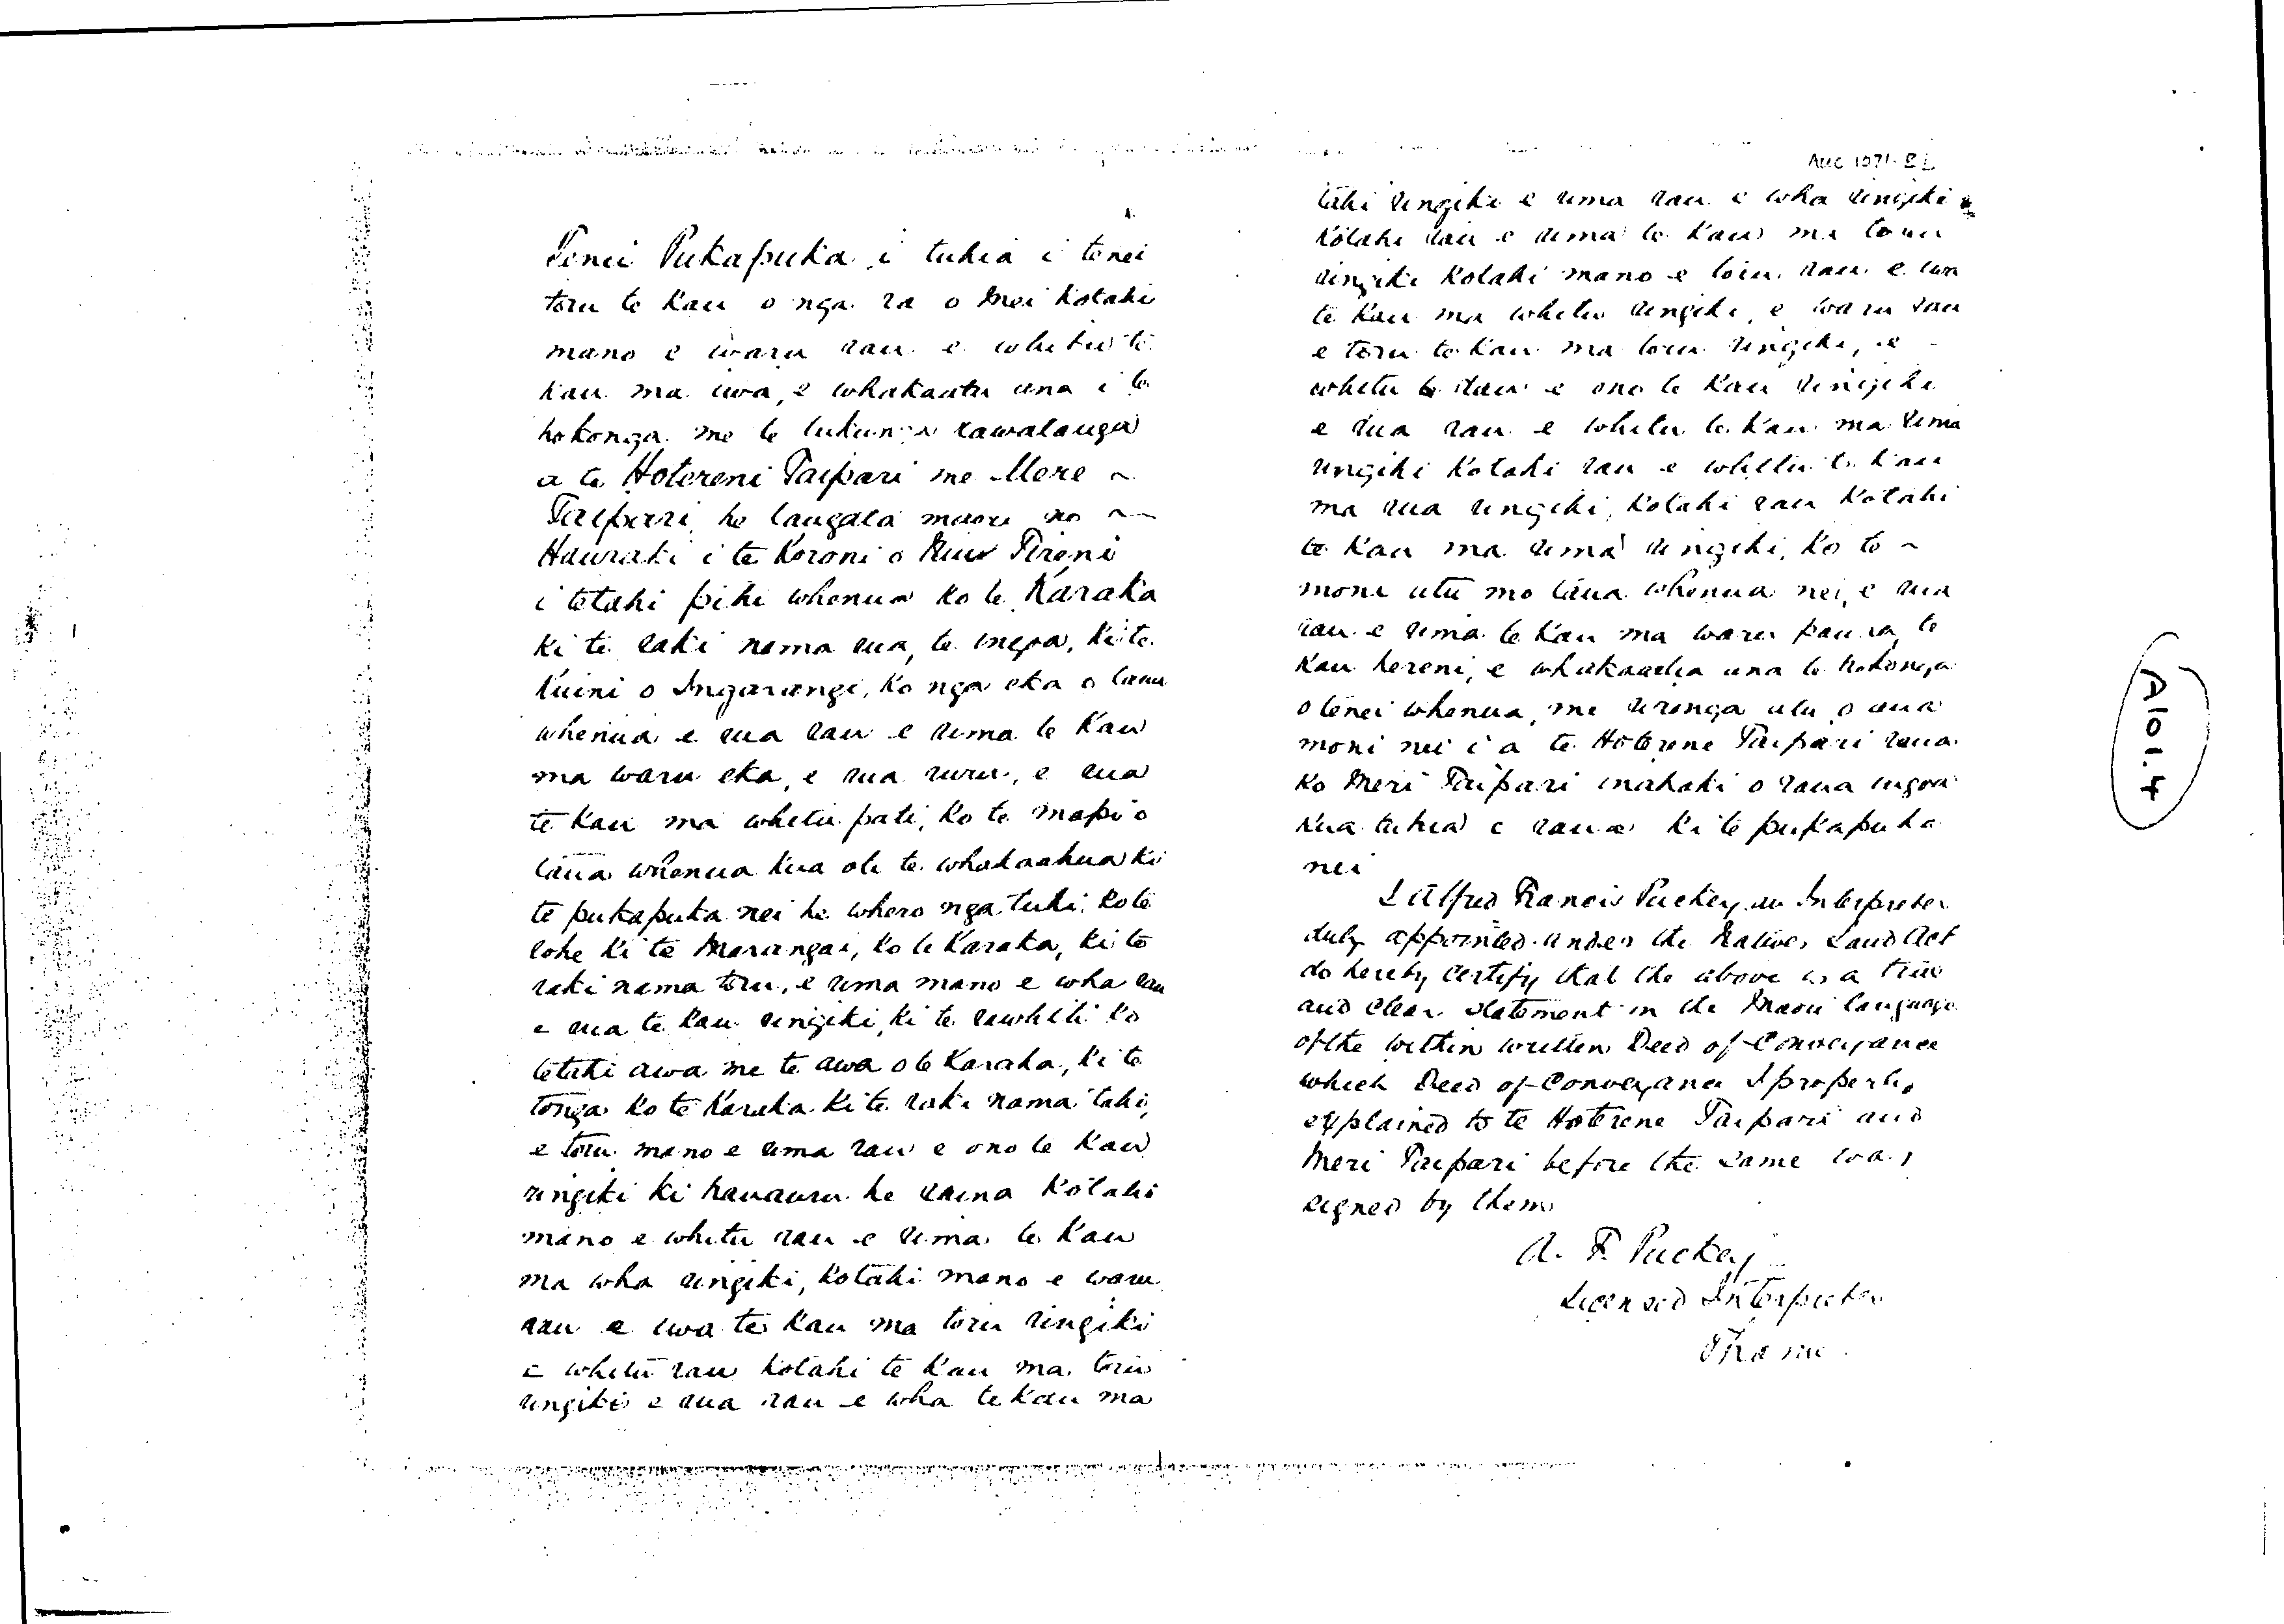 Tenei Pukapuka i tuhia i tenei
toru te kau o nga ra o Mei kotahi
mano e waru rau e whitu te
kau ma iwa, e whakaatu ana i te
hokonga me te tukunga rawatanga
a te Hotereni Taipari me Mere ~
Taipari he tangata maori no ~
Hauraki i te Koroni o Niu Tireni
i tetahi pihi whenua ko te Karaka
ki te raki nama rua, te ingoa, ki te
Kuini o Ingarangi, ko nga eka o taua
whenua e rua rau e rima te kau
ma waru eka, e rua ruru, e rua
te kau ma whitu pati, ko te mapi o
taua whenua kua oti te whakaahua ki
te pukapuka nei he whero nga tuhi, ko te
rohe ki te Marangai, ko te Karaka, ki te
raki nama toru, e rima mano e wha rau
e rua te kau ringiki, ki te rawhiti ko
tetahi awa me te awa o te Karaka, ki te
tonga ko te Karaka ki te raki nama tahi,
e toru mano e rima rau e ono te kau
ringiki ki hauauru he raina kotahi
mano e whitu rau e rima te kau
ma wha ringiki, kotahi mano e waru
rau e iwa te kau ma toru ringiki
e whitu rau kotahi te kau ma toru
ringiki e rua rau e wha te kau ma
AUC 1071
tahi ringiki e rima rau e wha ringiki
kotahi rau e rima te kau ma toru
ringiki kotahi mano e toru rau e iwa
te kau ma whitu ringiki, e waru rau
e toru te kau ma toru ringiki, e
whitu rau e ono te kau ringiki
e rua rau e whitu te kau ma rima
ringiki kotahi rau e whitu te kau
ma rua ringiki, kotahi rau kotahi
te kau ma rima ringiki, ko te ~
moni utu mo taua whenua nei, e rua
rau e rima te kau ma waru pauna te
kau hereni, e whakaaetia ana te hokonga
o tenei whenua, me riringa utu o aua
moni nei i a te Hoterene Taipari raua
ko Meri Taipari inahoki o raua ingoa
kua tuhia e raua ki te pukapuka
nei
I Alfred Francis Puckey an Interpreter
duly appointed under the Native Land Act
do hereby certify that the above is a true
and clear statement in the Maori language
of the within written Deed of Conveyance
which Deed of Conveyance I properly
explained to te Hoterene Taipari and
Meri Taipari before the same was
signed by them
A. F. Puckey
Licensed Interpreter
Thames
A101.4